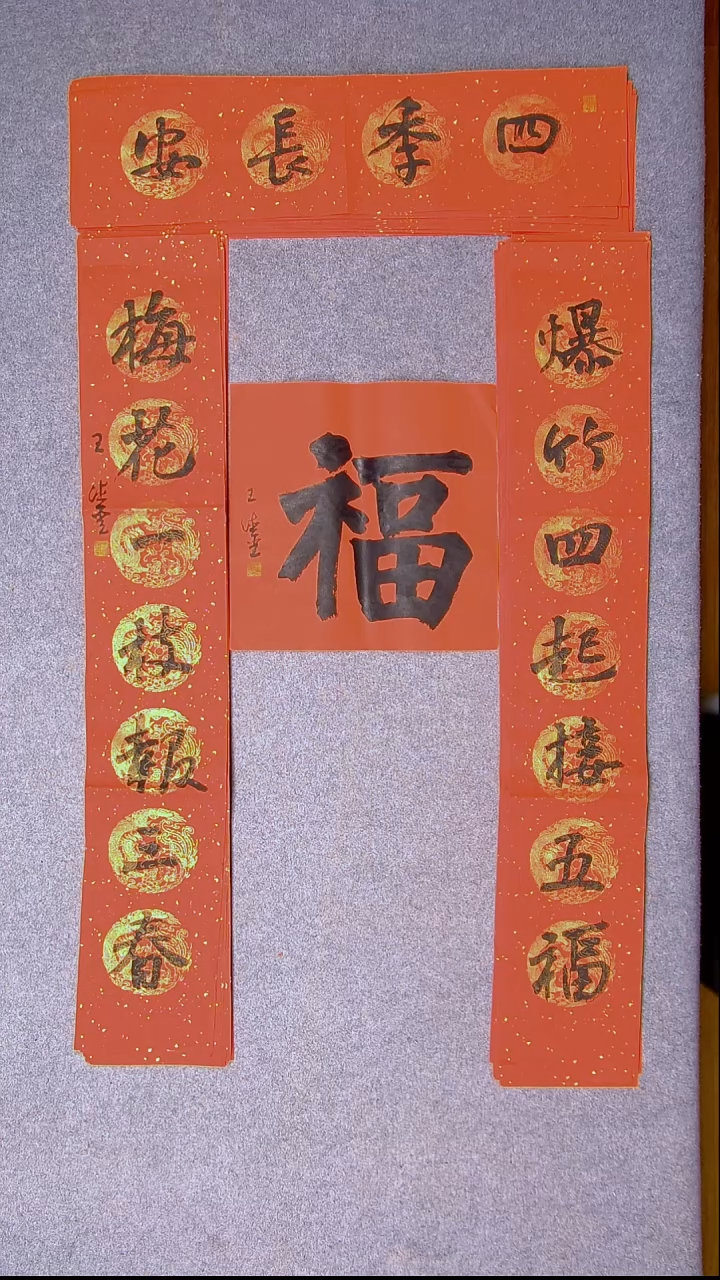 四季長安
爆竹四起接五福
梅花一枝報三春
福